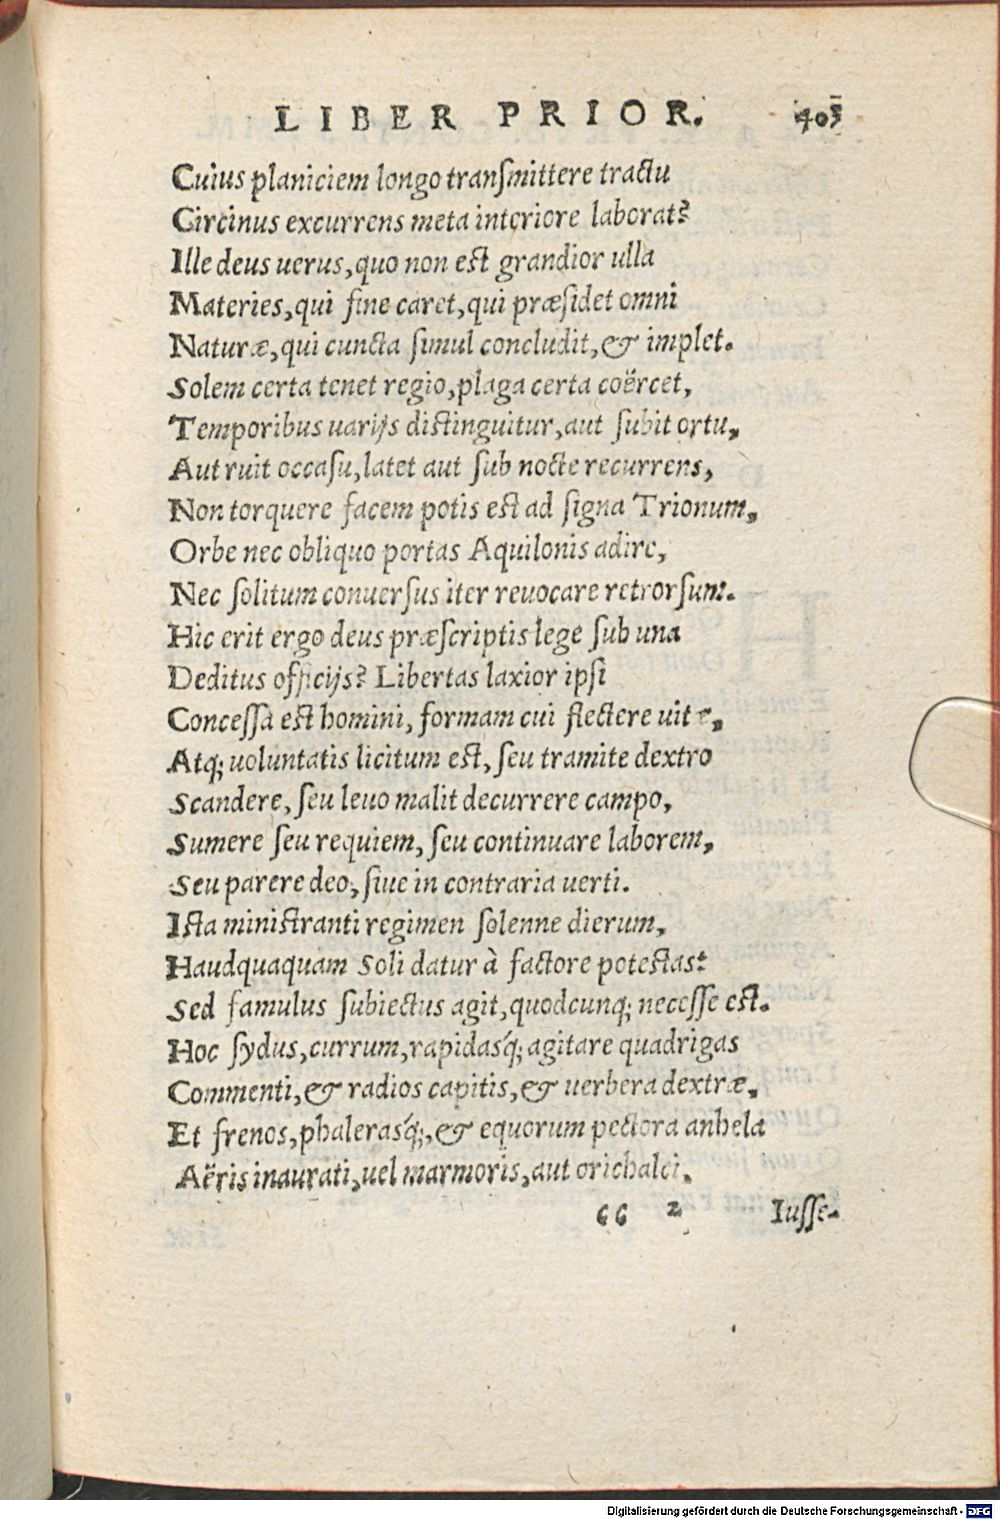 LIBER PRIOR. 403
Cuius planiciem longo transmittere tractu
Circinus excurrens meta interiore laborat?
Ille deus uerus, quo non est grandior ulla
Materies, qui fine caret, qui præsidet omni
Naturæ, qui cuncta simul concludit, & implet.
Solem certa tenet regio, plaga certa coërcet,
Temporibus uarijs distinguitur, aut subit ortu,
Aut ruit occasu, latet aut sub nocte recurrens,
Non torquere facem potis est ad signa Trionum,
Orbe nec obliquo portas Aquilonis adire,
Nec solitum conuersus iter reuocare retrorsum.
Hic erit ergo deus præscriptis lege sub una
Deditus officijs? Libertas laxior ipsi
Concessa est homini, formam cui flectere uitæ,
Atq; uoluntatis licitum est, seu tramite dextro
Scandere, seu leuo malit decurrere campo,
Sumere seu requiem, seu continuare laborem,
Seu parere deo, siue in contraria uerti.
Ista ministranti regimen solenne dierum,
Haudquaquam Soli datur à factore potestas:
Sed famulus subiectus agit, quodcunq; necesse est.
Hoc sydus, currum, rapidasq́; agitare quadrigas
Commenti, & radios capitis, & uerbera dextræ,
Et frenos, phalerasq́;, & equorum pectora anhela
Aëris inaurati, uel marmoris, aut orichalci.
GG 2 Iusse-
Digitalisierung gefördert durch die Deutsche Forschungsgemeinschaft - DFG